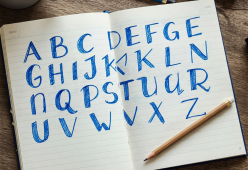 A B C D E F G E
G H I J K K L N
N Q P S T U A R
U V W V X Z